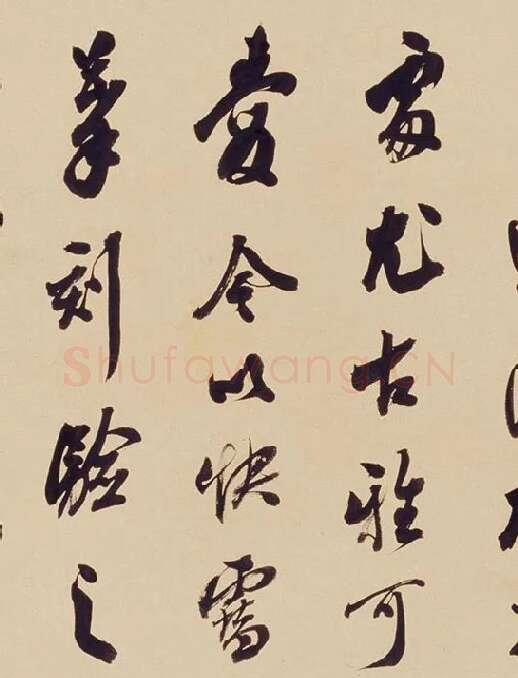 處尤古雅可
愛今以快雪
摹刻驗之
Shufawang.CN